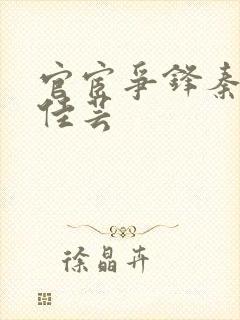 官宦争锋秦
佳芸
徐晶卉